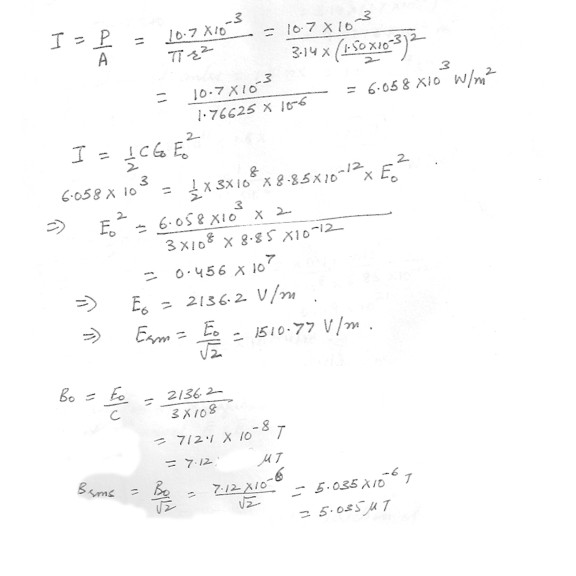 I = P/A = 10.7 × 10^-3 / πr^2 = 10.7 × 10^-3 / 3.14 × (1.50×10^-3 / 2)^2
= 10.7 × 10^-3 / 1.76625 × 10^-6 = 6.058 × 10^3 W/m^2
I = 1/2 C ε0 E0^2
6.058 × 10^3 = 1/2 × 3×10^8 × 8.85×10^-12 × E0^2 .
⇒ E0^2 = 6.058 × 10^3 × 2 / 3×10^8 × 8.85 × 10^-12
= 0.456 × 10^7
⇒ E0 = 2136.2 V/m .
⇒ Erm = E0/√2 = 1510.77 V/m .
B0 = E0/C = 2136.2 / 3×10^8
= 712.1 × 10^-8 T
= 7.12 μT
Brms = B0/√2 = 7.12 × 10^-6 / √2 = 5.035 × 10^-6 T
= 5.035 μT